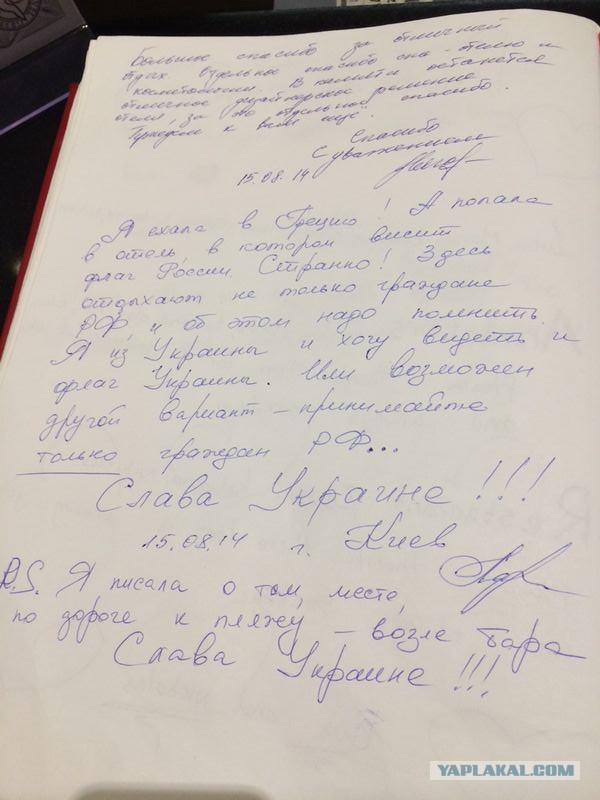 Большое спасибо за отличный
отдых. Отдельное спасибо спа-отелю и
косметологии. В памяти останется
отличное дизайнерское решение
отеля, за это отдельное спасибо.
к вам еще.
Спасибо
С уважением
15.08.14
Я ехала в Грецию! А попала
в отель, в котором висит
флаг России. Странно! Здесь
отдыхают не только граждане
РФ, и об этом надо помнить.
Я из Украины и хочу видеть и
флаг Украины. Или возможен
другой вариант – принимайте
только граждан РФ...
Слава Украине!!!
15.08.14 г. Киев
P.S. Я писала о том, место,
по дороге к пляжу – возле бара
Слава Украине!!!
YAPLAKAL.COM